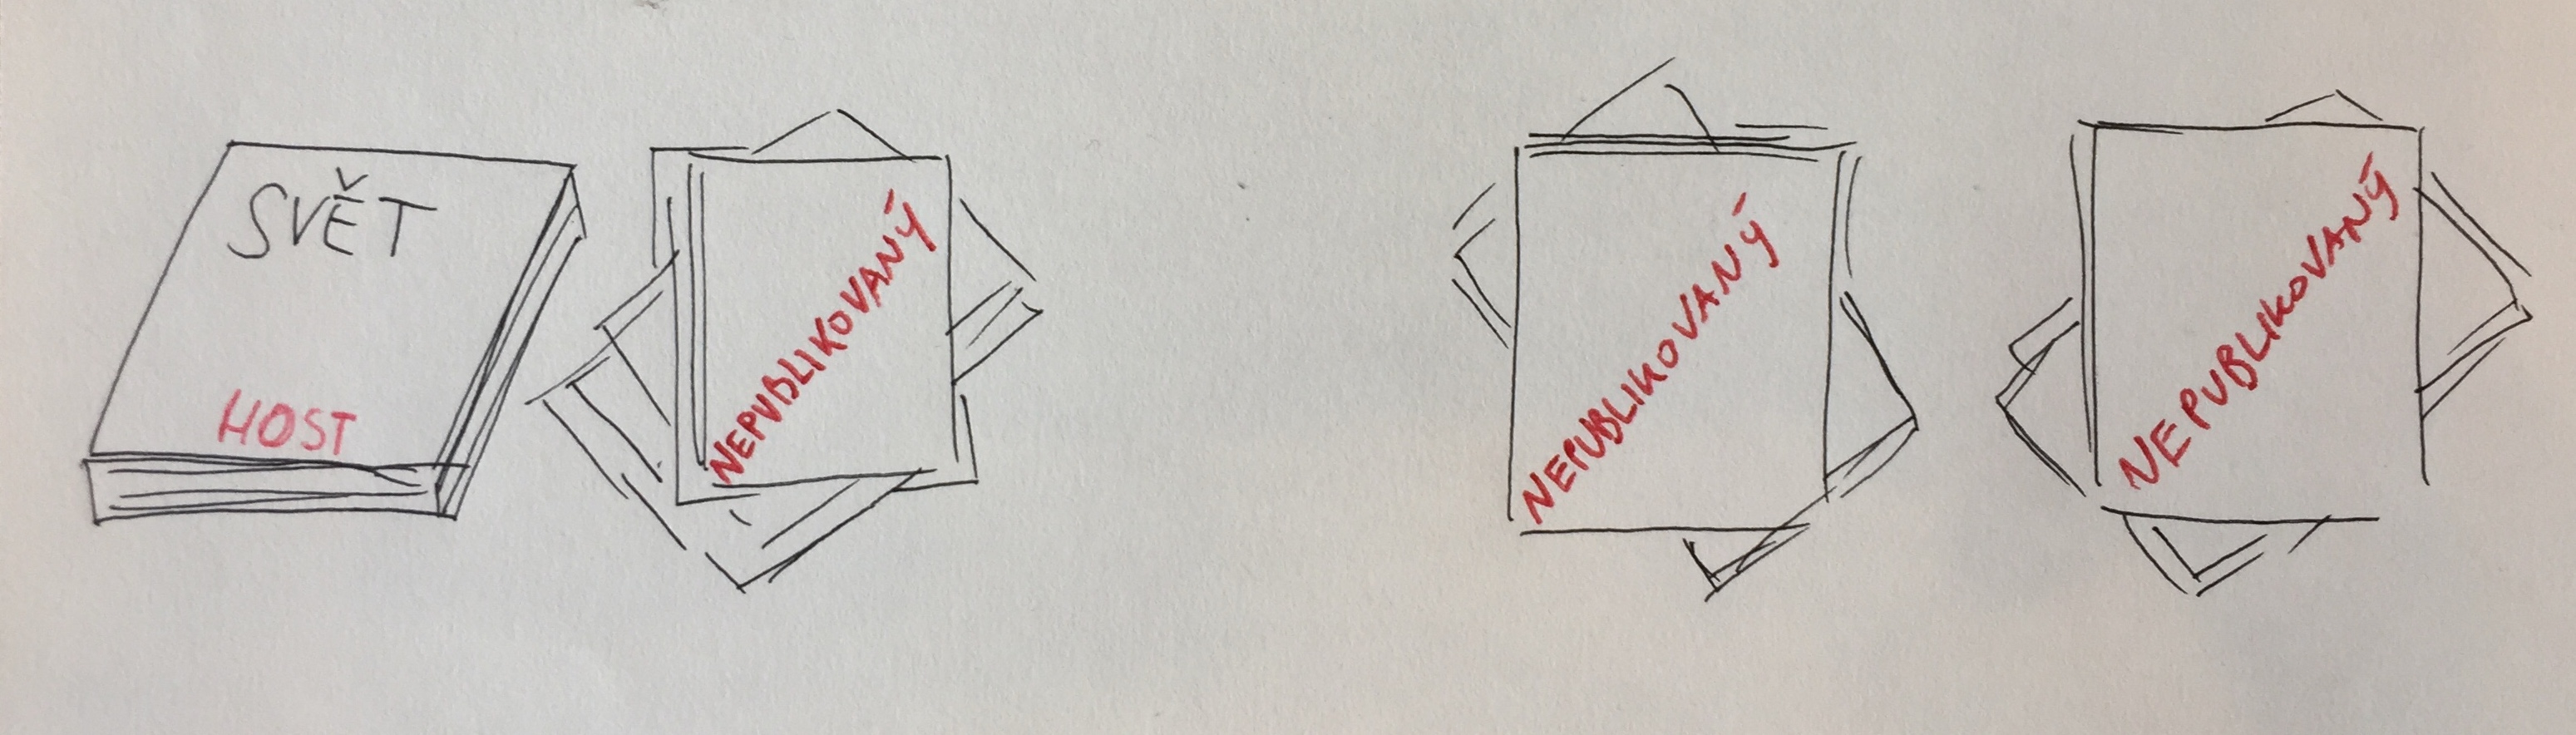 SVĚT
HOST
NEPUBLIKOVANÝ
NEPUBLIKOVANÝ
NEPUBLIKOVANÝ